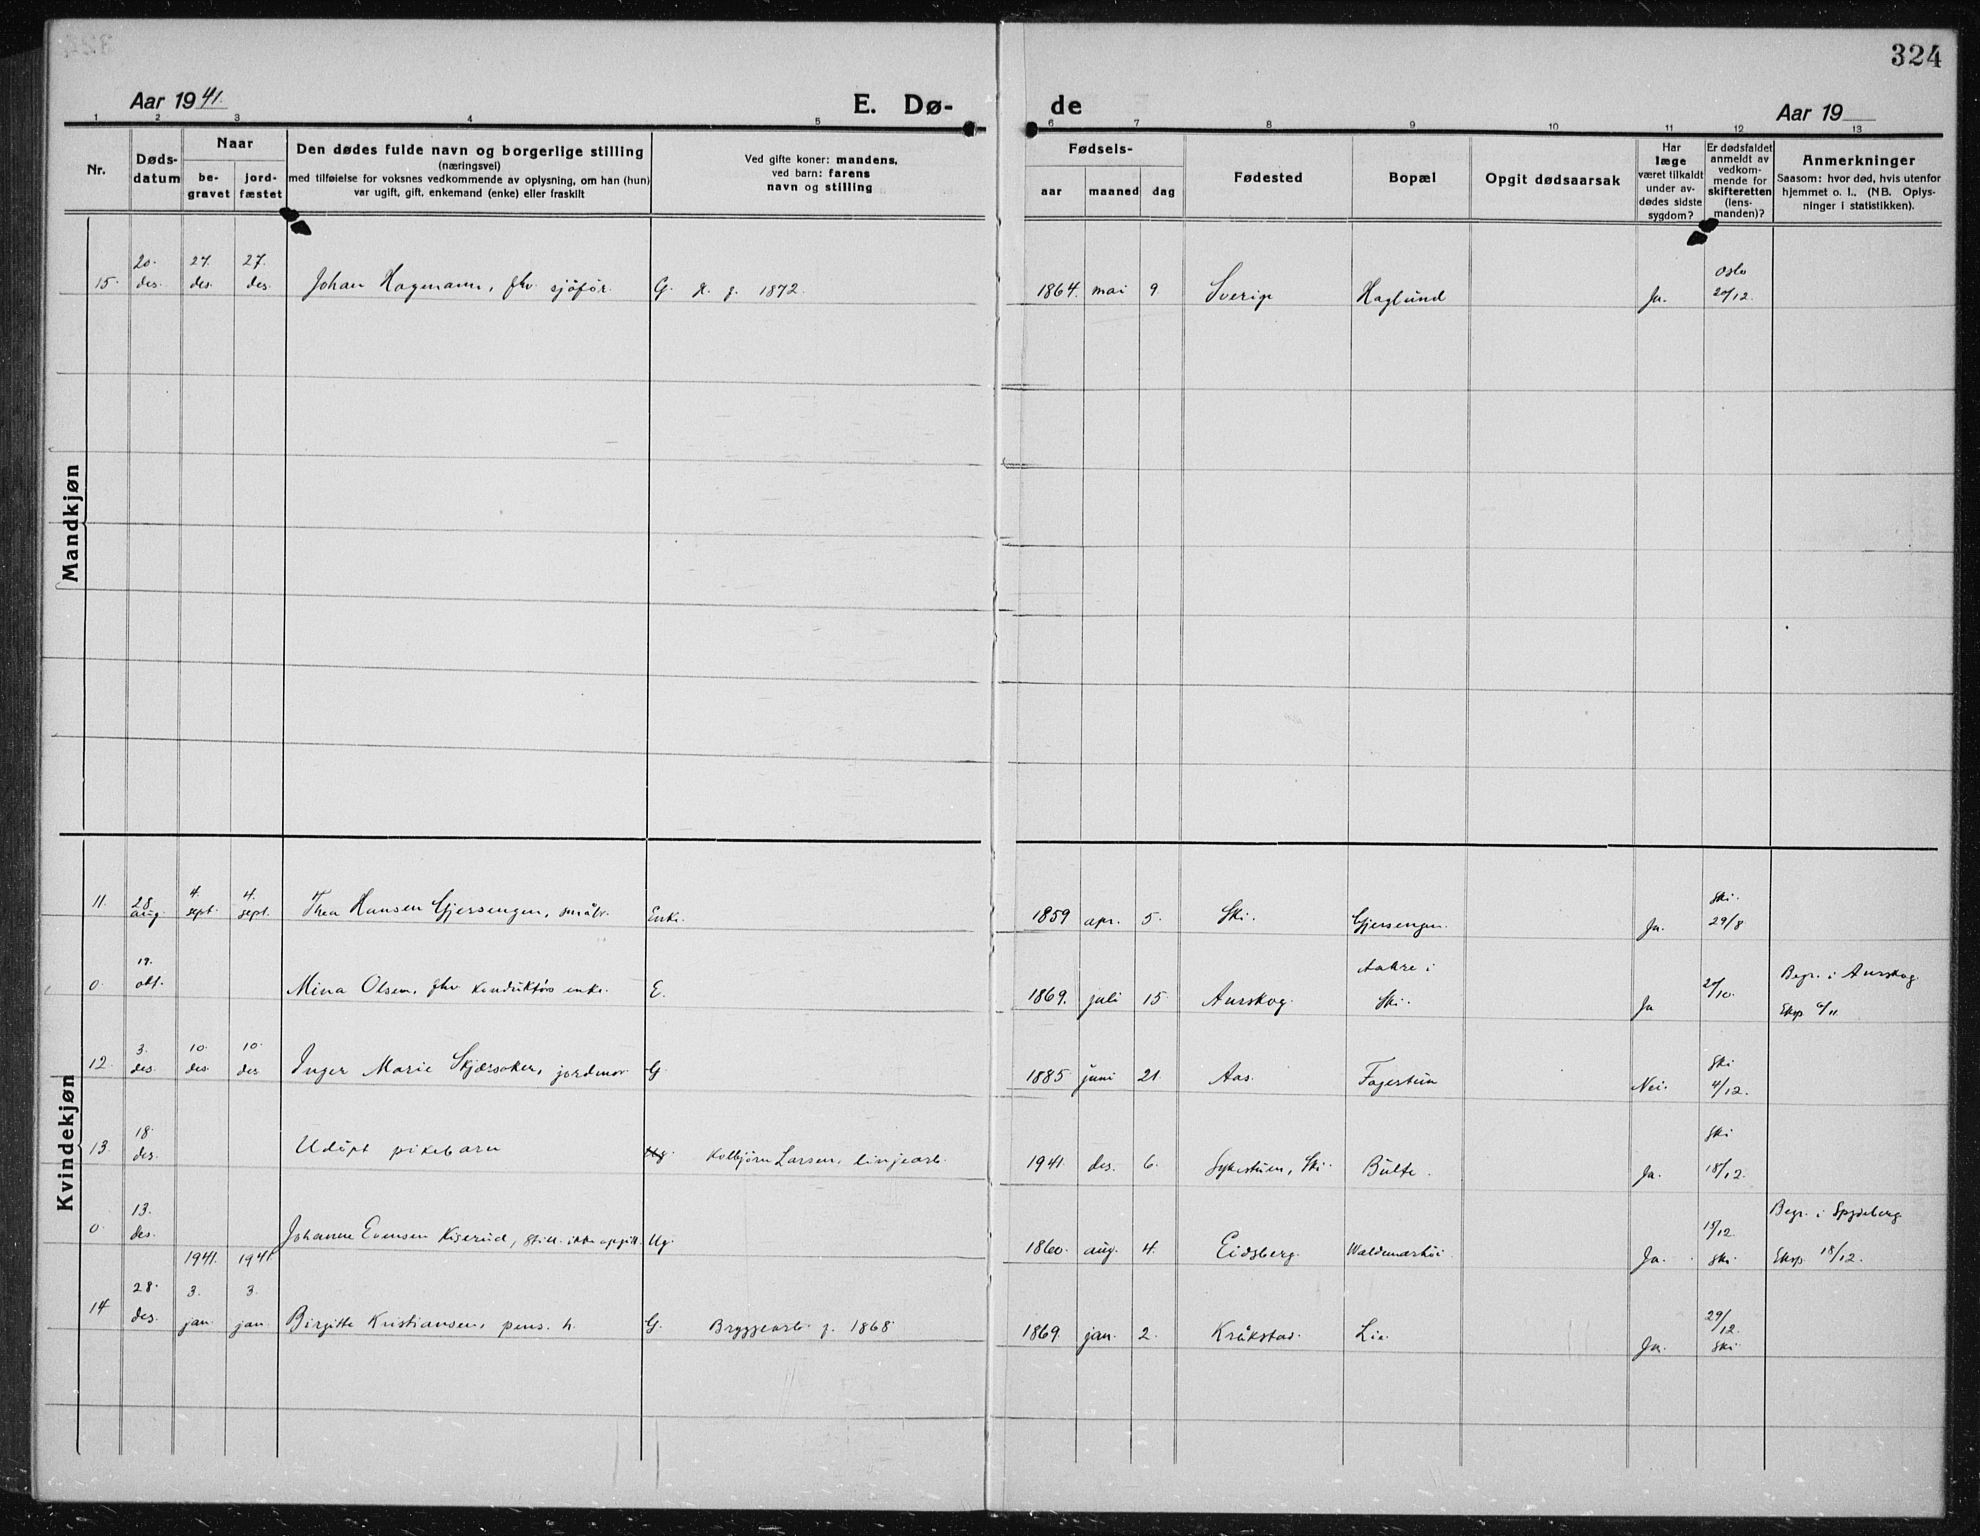 324
Aar 1941.
E. Dø-
de
Aar 19
1 2 3 4 5 6 7 8 9 10 11 12 13
Nr.
Døds-
datum
Naar
be-
gravet
jord-
fæstet
Den dødes fulde navn og borgerlige stilling
(næringsvei)
med tilføielse for voksnes vedkommende av oplysning, om han (hun)
var ugift, gift, enkemand (enke) eller fraskilt
Ved gifte koner: mandens,
ved barn: farens
navn og stilling
Fødsels-
aar maaned dag
Fødested
Bopæl
Opgit dødsaarsak
Har
læge
været tilkaldt
under av-
dødes sidste
sygdom?
Er dødsfaldet
anmeldt av
vedkom-
mende for
skifteretten
(lens-
manden)?
Anmerkninger
Saasom: hvor død, hvis utenfor
hjemmet o. l.. (NB. Oplys-
ninger i statistikken).
Mandkjøn
20. 27. 27. Oslo
15. des. des. des. Johan Hagmann, fhv. sjåfør. G. g. f. 1872. 1864. mai 9 Sverige Haglund Ja. 20/12.
Kvindekjøn
28. 4. 4. Ski.
11. aug. sept. sept. Thea Hansen Gjersengen, småbr. Enke. 1859 apr. 5. Ski. Gjersengen. Ja. 29/8
19. Aakre i Begr. i Aurskog.
0. okt. Mina Olsen, fhv. konduktørs enke. E. 1869. juli 15. Aurskog. Ski. Ja 20/10. Eksp. 6/11
3. 10. 10. Ski
12. des. des. des. Inger Marie Skjærsaker, jordmor G. 1885 juni 21. Aas. Fagertun Nei. 4/12.
18. Ski
13. des. Udøpt pikebarn Ug. Kolbjørn Larsen, linjearb. 1941. des. 6. Sykestuen, Ski. Bulte. Ja. 18/12.
13. 15/12. Begr. i Spydeberg
0. des. Johanne Evensen Kiserud, still. ikke opgitt. Ug. 1860. aug. 4. Eidsberg. Waldemarhøi Ja. Ski Eksp. 18/12.
1941. 1941
28. 3. 3. 29/12.
14 des. jan. jan. Birgitte Kristiansen, pens. h. G. Bryggearb. f. 1868 1869. jan. 2. Kråkstad. Lie. Ja. Ski